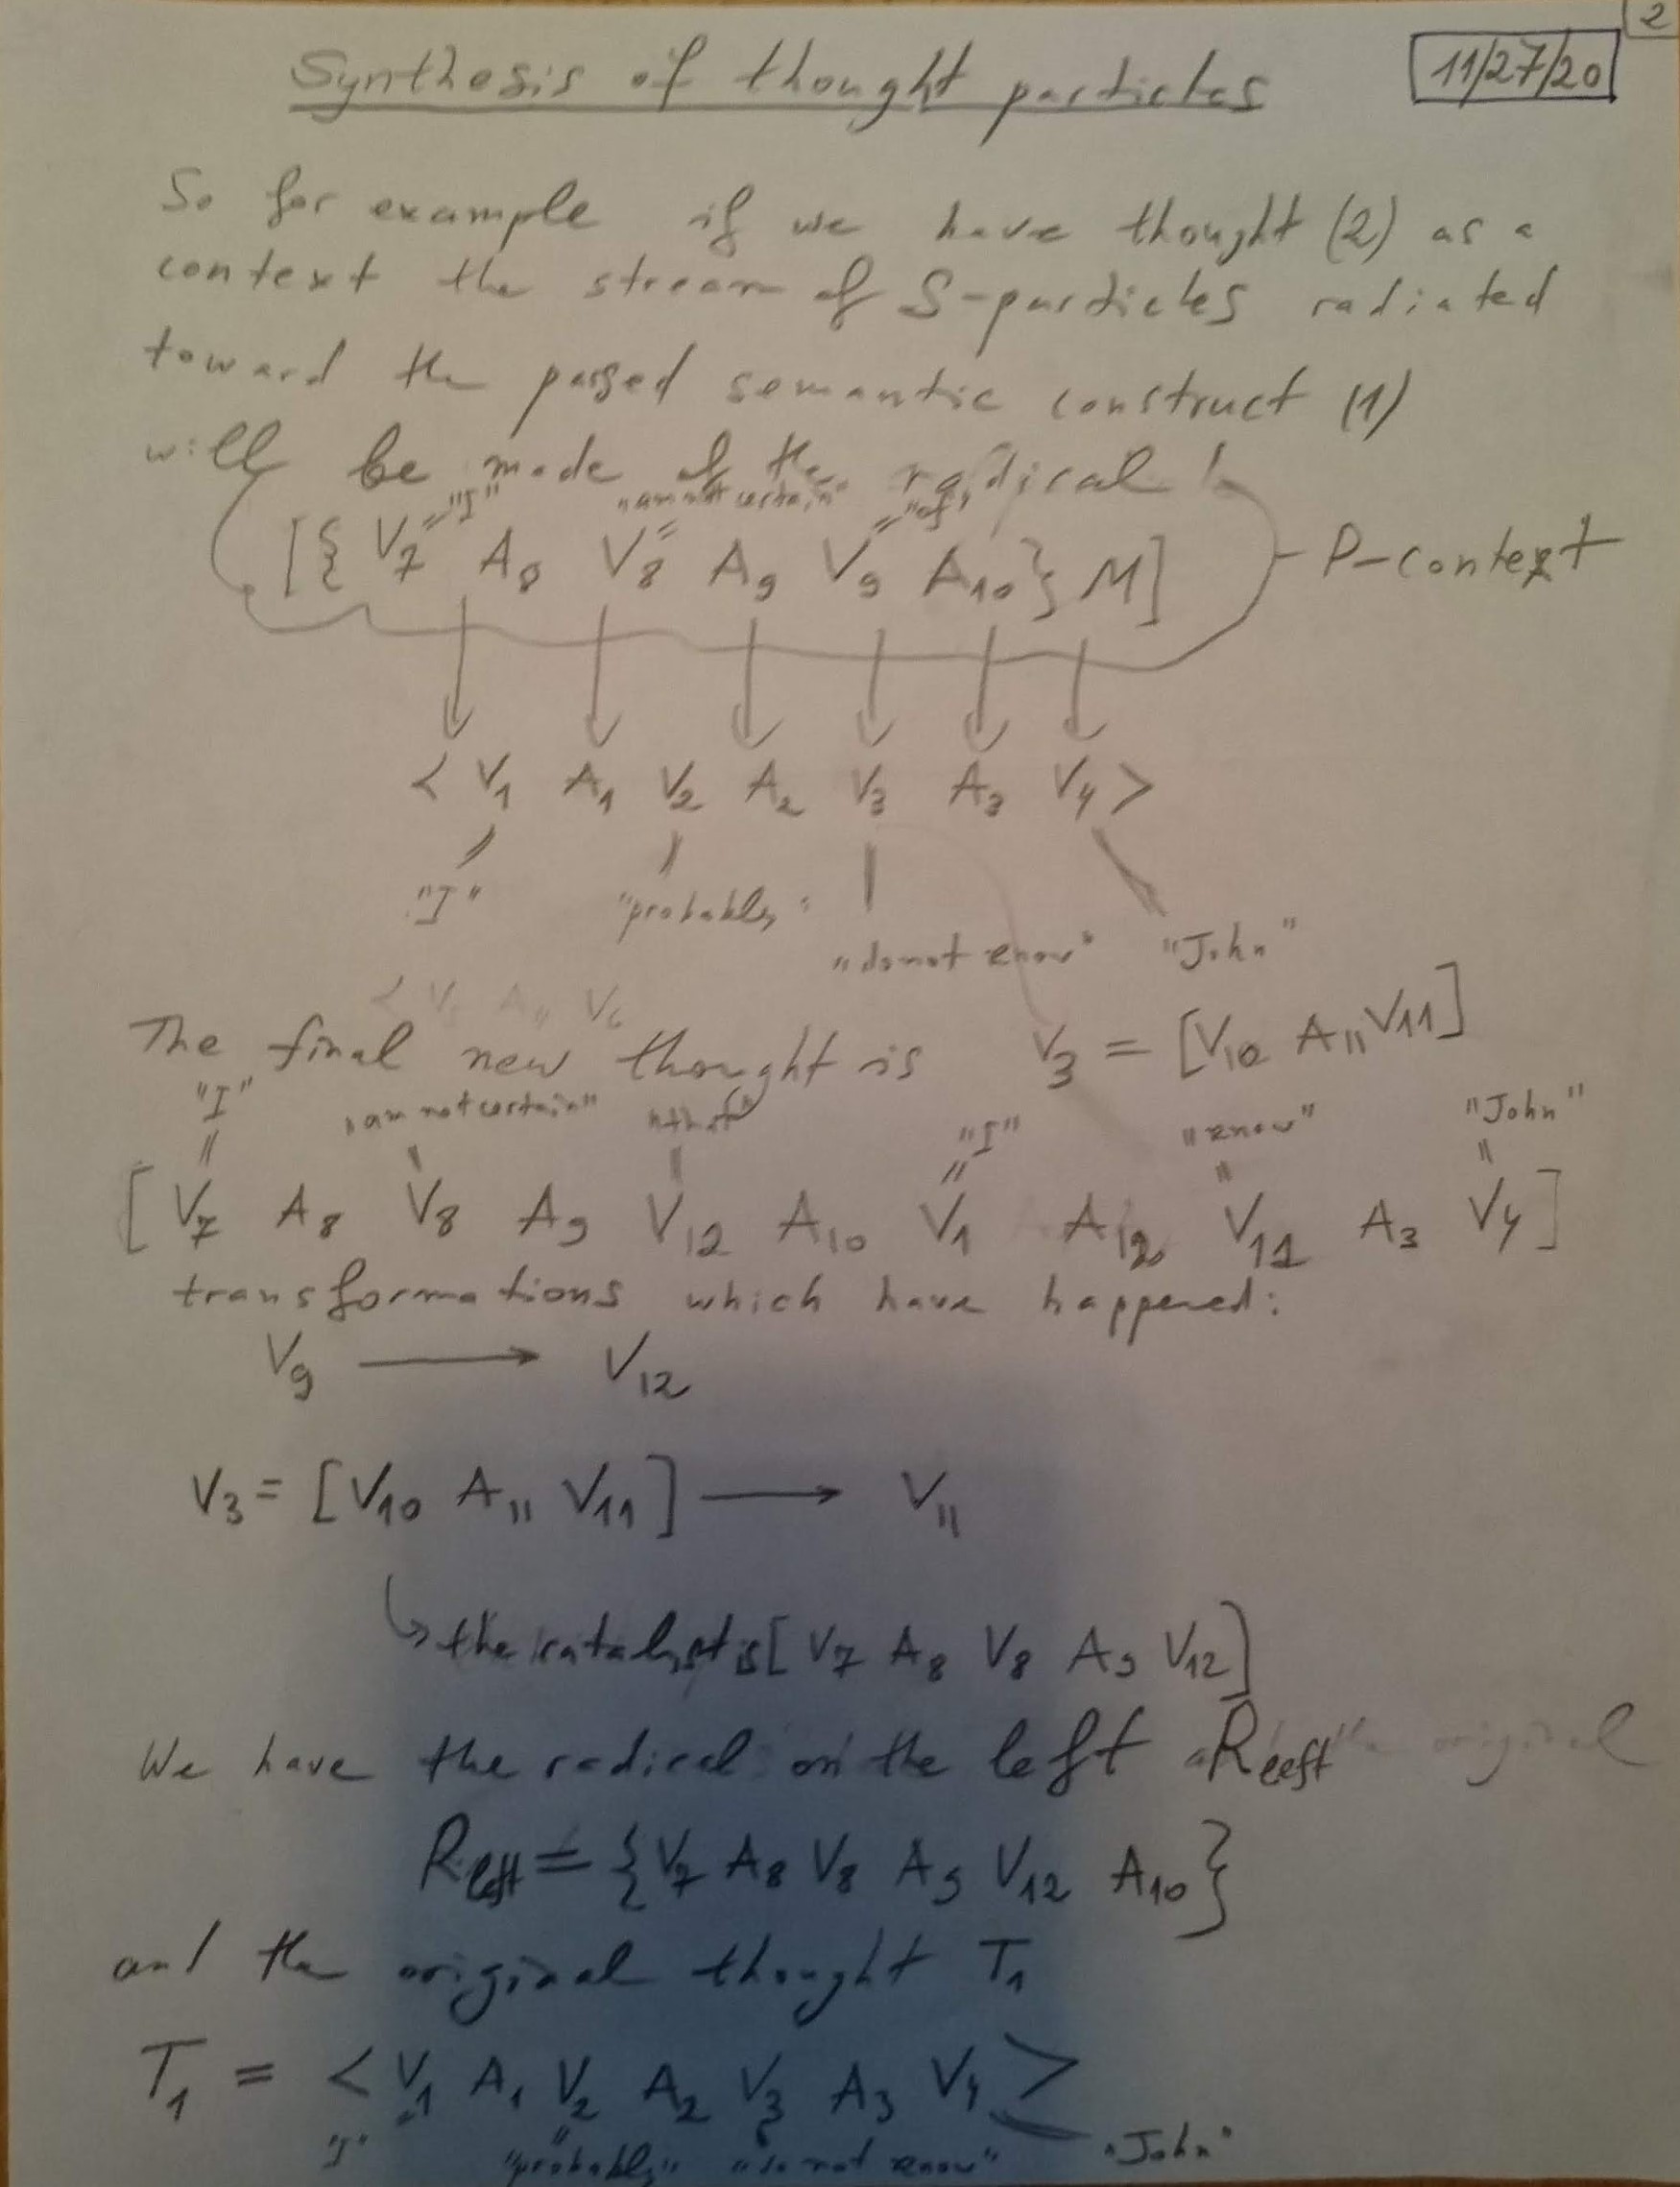 2
Synthesis of thought particles
11/27/20
So for example if we have thought (2) as a
context the stream of S-particles radiated
toward the parsed semantic construct (1)
will be made of the radical
"I" "am not certain" "of"
[{ V7 A8 V8 A9 V9 A10 } M] P-context
< V1 A1 V2 A2 V3 A3 V4 >
"I" "probably" "do not know" "John"
The final new thought is V3 = [V10 A11 V11]
"I" "am not certain" "that" "I" "know" "John"
[ V7 A8 V8 A9 V12 A10 V1 A12 V11 A3 V4 ]
transformations which have happened:
V9 → V12
V3 = [V10 A11 V11] → V11
↳ the catalyst is [ V7 A8 V8 A9 V12 ]
We have the radical on the left Rleft
Rleft = { V7 A8 V8 A9 V12 A10 }
and the original thought T1
T1 = < V1 A1 V2 A2 V3 A3 V4 >
"I" "probably" "do not know" "John"